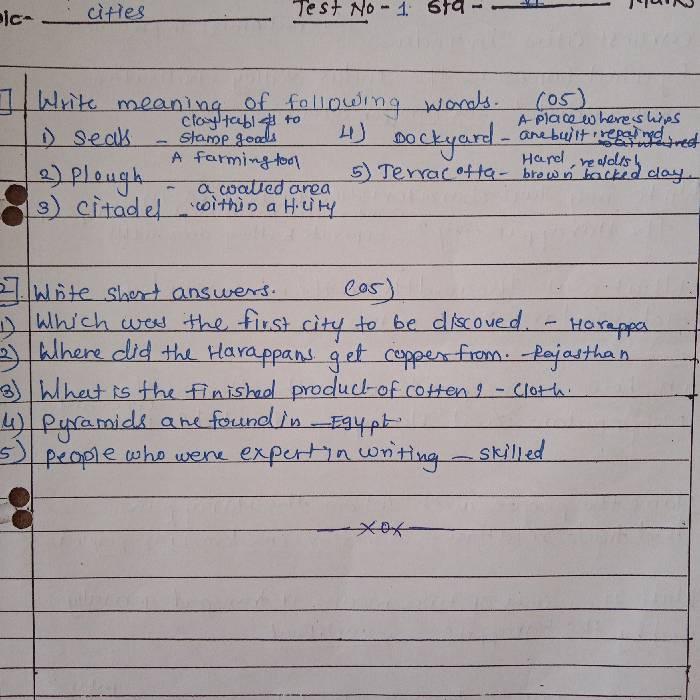 cities Test No - 1 Std -
1] Write meaning of following words. (05)
1) Seals - Clay tablets to stamp goods 4) Dockyard - A place where ships are built, repaired
2) Plough - A farming tool 5) Terracotta - Hard, reddish brown backed clay.
3) Citadel - a walled area within a H.city
2]. Write short answers. (05)
1) Which was the first city to be discoved. - Harappa
2) Where did the Harappans get copper from. - Rajasthan
3) What is the finished product of cotten? - Cloth.
4) Pyramids are found in - Egypt.
5) People who were expert in writing - skilled
— xox —